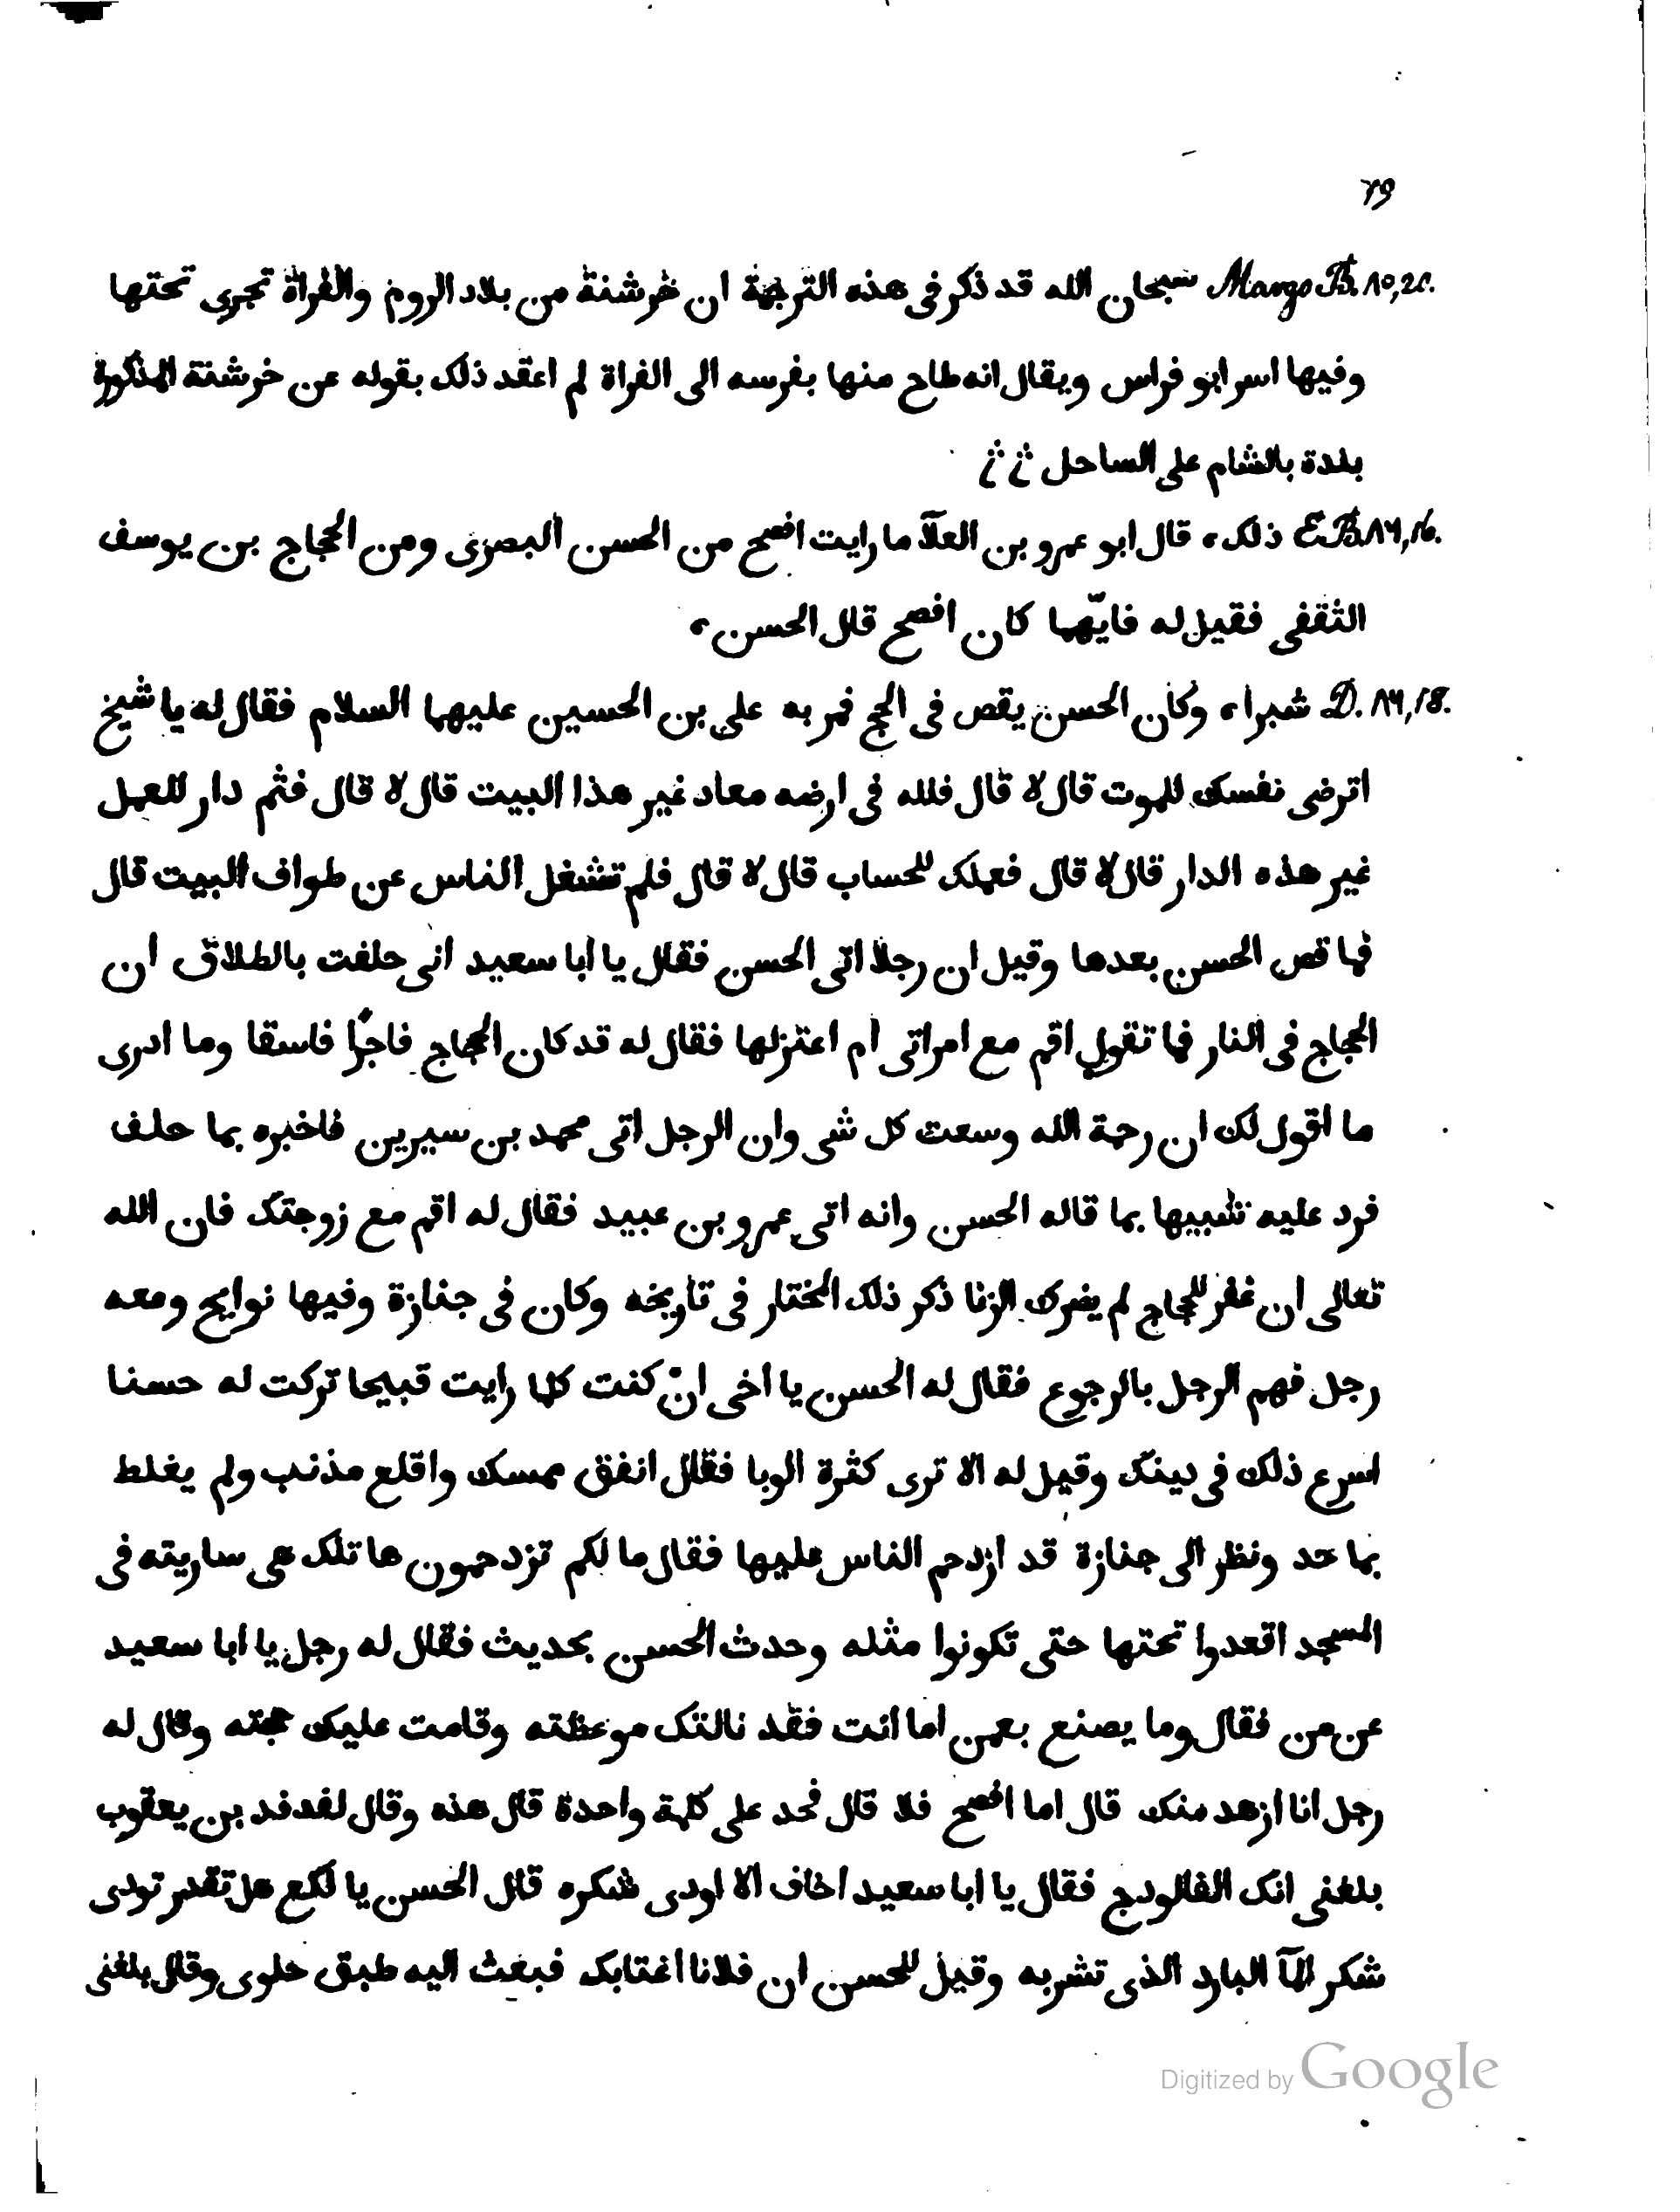 ٢٩
Margo B. ٨٥,20. سبحان الله قد ذكر فى هذه الترجمة ان خرشنة من بلاد الروم والفراة تجرى تحتها
وفيها اسر ابو فراس ويقال انه طاح منها بفرسه الى الفراة لم اعقد ذلك بقوله عن خرشنة المذكورة
بلدة بالشام على الساحل
E.B.٨٦,16. ذلك، قال ابو عمرو بن العلآ ما رايت افصح من الحسن البصرى ومن الحجاج بن يوسف
الثقفى فقيل له فايّهما كان افصح قال الحسن،
D. ٨٦,18. شبرا، وكان الحسن يقص فى الحج فمر به على بن الحسين عليهما السلام فقال له يا شيخ
اترضى نفسك للموت قال لا قال فلله فى ارضه معاد غير هذا البيت قال لا قال فثم دار للعمل
غير هذه الدار قال لا قال فعملك للحساب قال لا قال فلم تشغل الناس عن طواف البيت قال
فما قص الحسن بعدها وقيل ان رجلا اتى الحسن فقال يا ابا سعيد انى حلفت بالطلاق ان
الحجاج فى النار فما تقول اقم مع امراتى ام اعتزلها فقال له قد كان الحجاج فاجرًا فاسقا وما ادرى
ما اقول لك ان رحمة الله وسعت كل شى وان الرجل اتى محمد بن سيرين فاخبره بما حلف
فرد عليه شبيها بما قاله الحسن وانه اتى عمرو بن عبيد فقال له اقم مع زوجتك فان الله
تعالى ان غفر للحجاج لم يضرك الزنا ذكر ذلك المختار فى تاريخه وكان فى جنازة وفيها نوايح ومعه
رجل فهم الرجل بالرجوع فقال له الحسن يا اخى انْ كنت كلما رايت قبيحا تركت له حسنا
اسرع ذلك فى دينك وقيل له الا ترى كثرة الوبا فقال انفق ممسك واقلع مذنب ولم يغلط
بما حد ونظر الى جنازة قد ازدحم الناس عليها فقال ما لكم تزدحمون ها تلك هى ساريته فى
المسجد اقعدوا تحتها حتى تكونوا مثله وحدث الحسن بحديث فقال له رجل يا ابا سعيد
عن من فقال وما يصنع بعمن اما انت فقد نالتك موعظته وقامت عليك حجته وقال له
رجل انا ازهد منك قال اما افصح فلا قال فحد على كلمة واحدة قال هذه وقال لفدفد بن يعقوب
بلغنى انك الفالودج فقال يا ابا سعيد اخاف الا اودى شكره قال الحسن يا لكع هل تقدر تودى
شكر المآ البارد الذى تشربه وقيل للحسن ان فلانا اغتابك فبعث اليه طبق حلوى وقال بلغنى
Digitized by Google